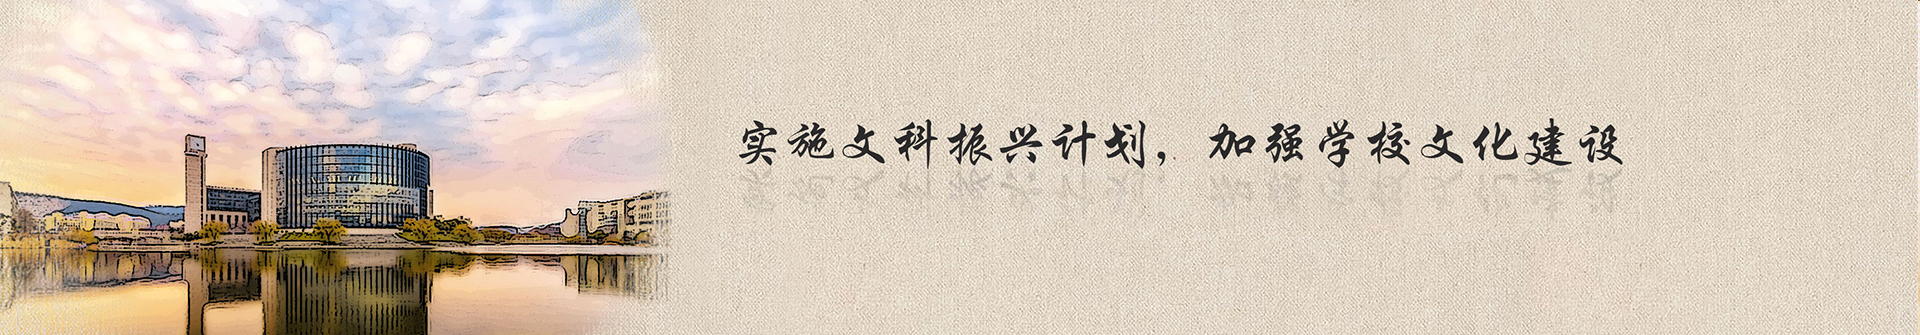 实施文科振兴计划，加强学校文化建设